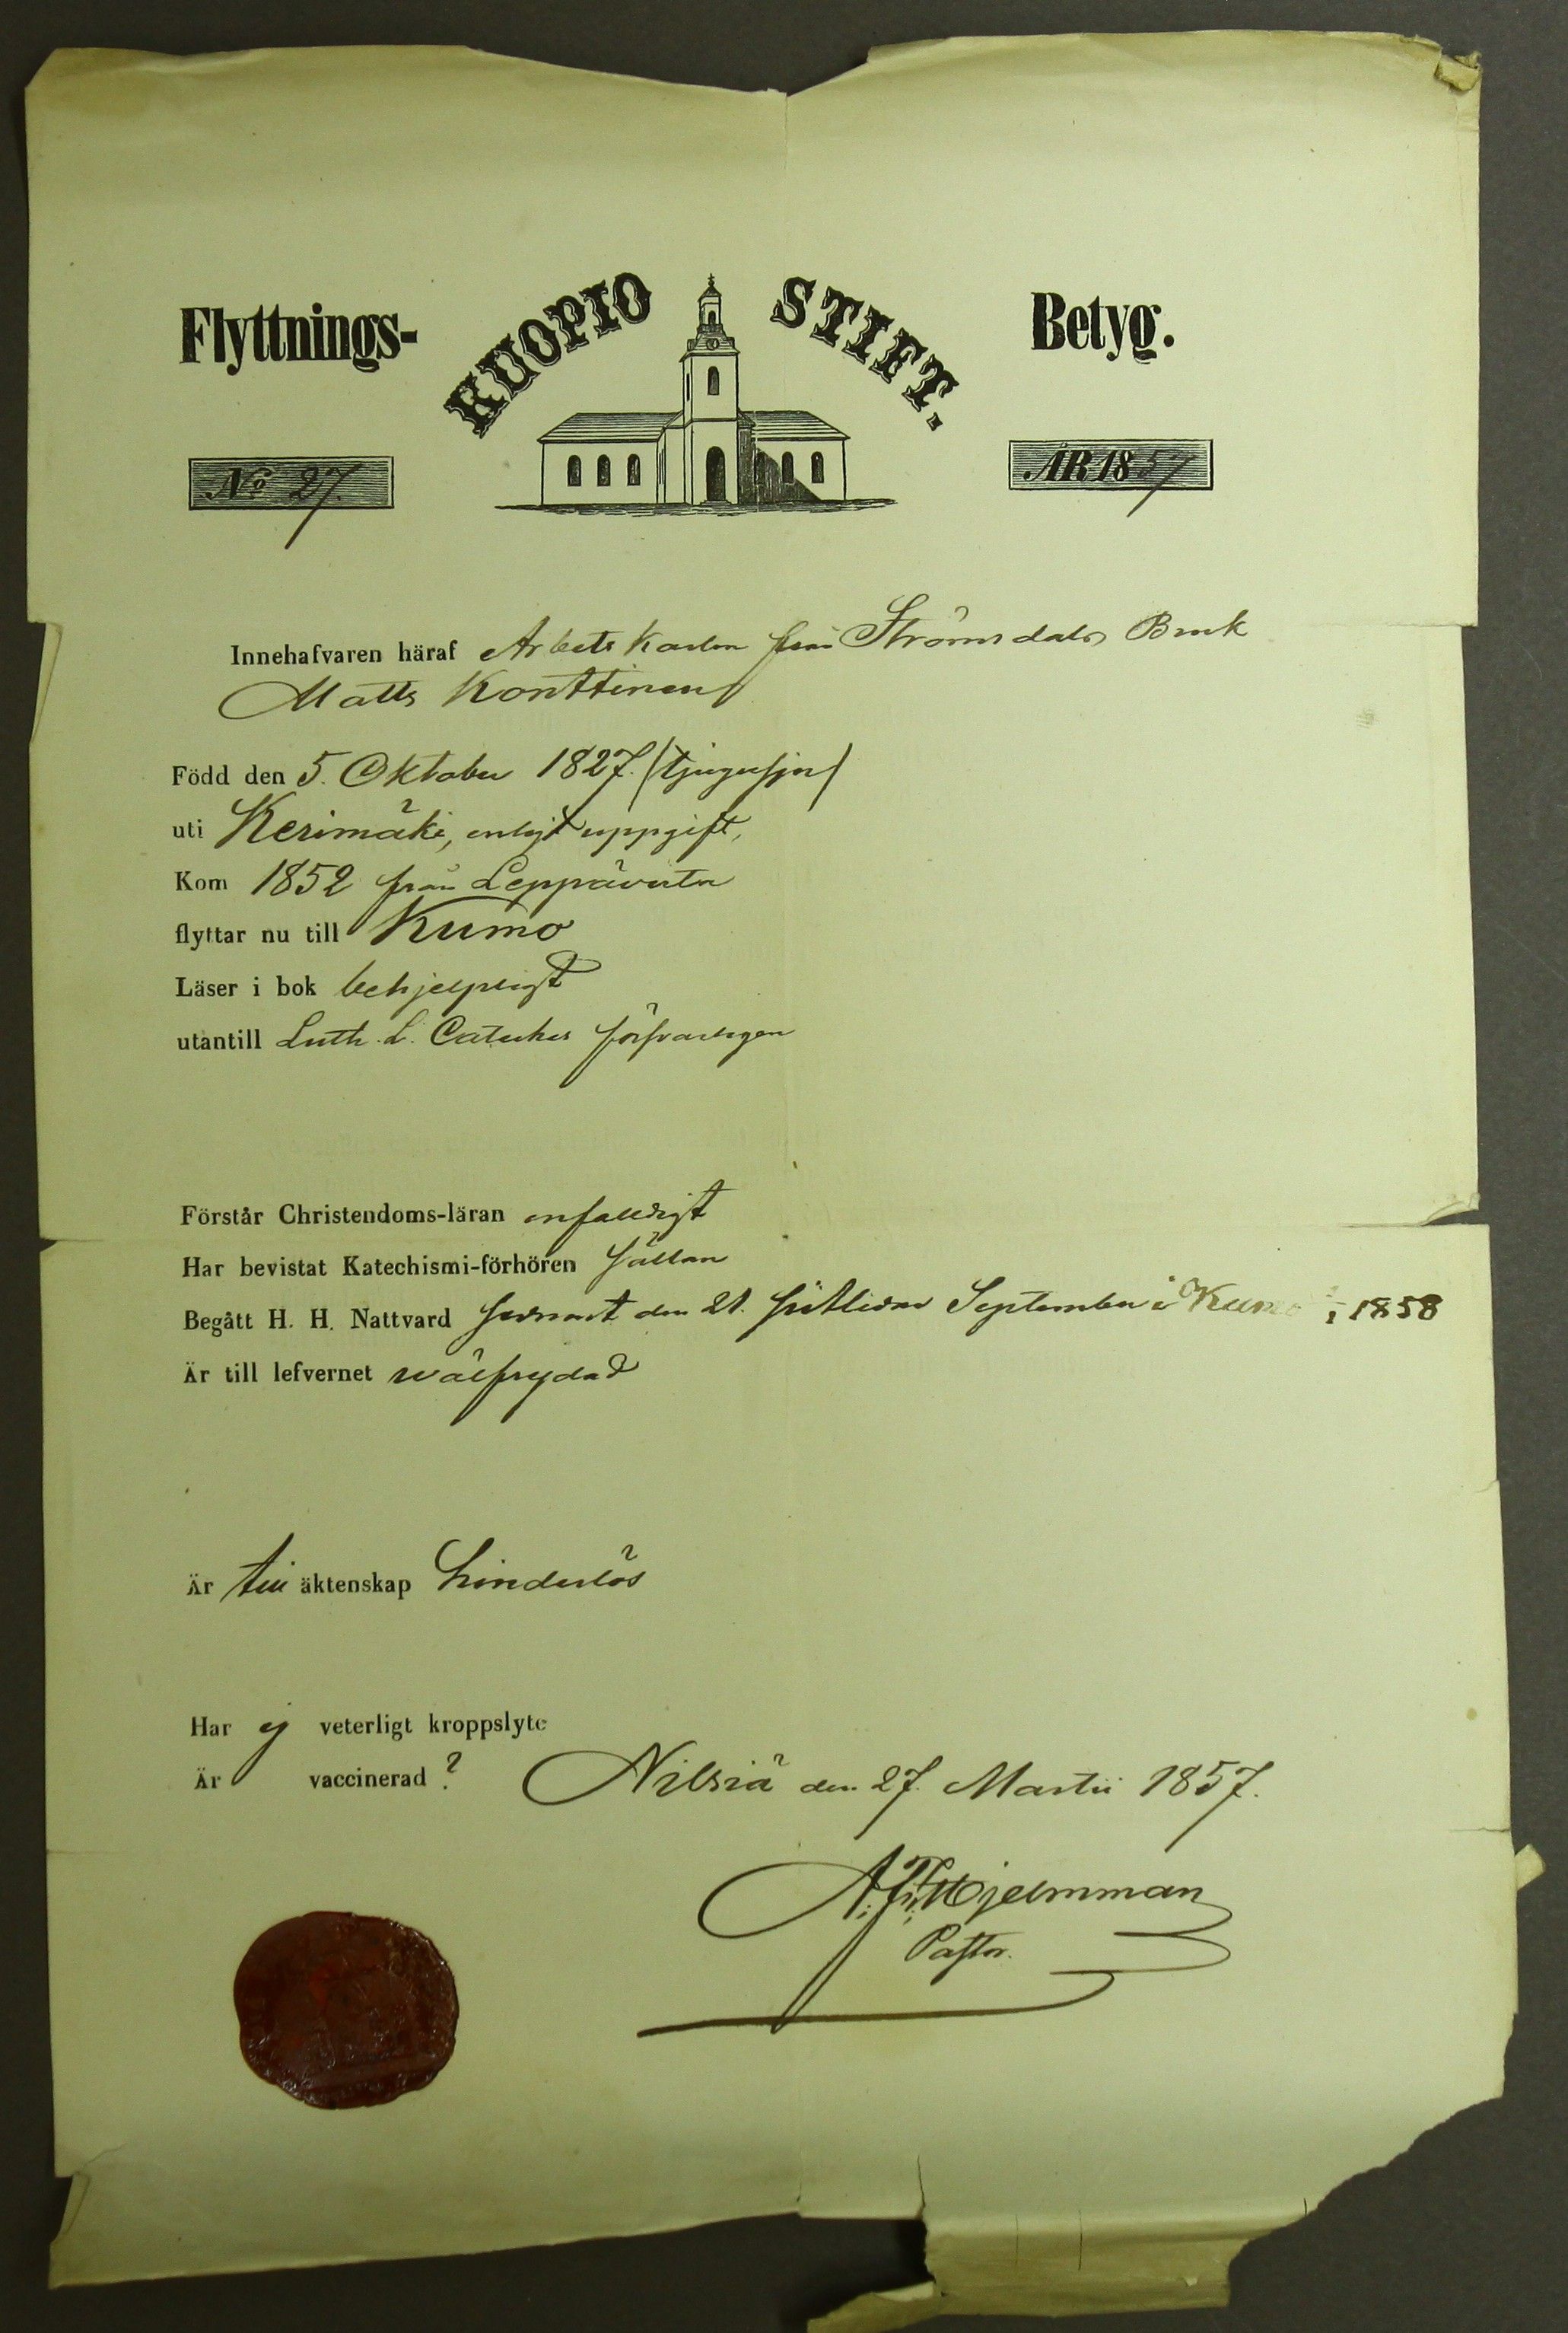 Flyttnings- KUOPIO STIFT. Betyg.
No 27. ÅR 1857
Innehafvaren häraf Arbets Karlen från Strömsdals Bruk
Matts Konttinen
Född den 5. Oktober 1827. (tjugusju)
uti Kerimäki, enligt uppgift,
Kom 1852 från Leppävirta
flyttar nu till Kumo
Läser i bok behjelpligt
utantill Luth. L. Cateches försvarligen
Förstår Christendoms-läran enfaldigt
Har bevistat Katechismi-förhören sällan
Begått H. H. Nattvard sednast den 21. sistlidne September i Kumo i 1858
Är till lefvernet wälfrejdad
Är till äktenskap hinderlös
Har ej veterligt kroppslyte
Är vaccinerad? Nilsiä den 27. Martii 1857.
Hjelmman
Pastor.